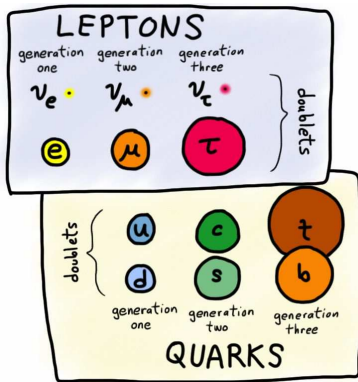 LEPTONS
generation one generation two generation three
νe νμ ντ
e μ τ
doublets
doublets
u c t
d s b
generation one generation two generation three
QUARKS